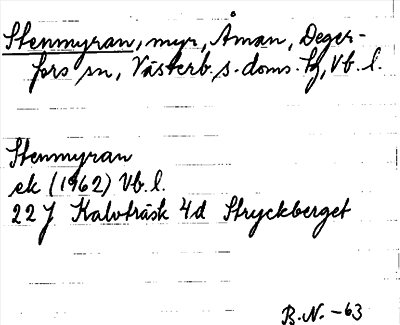 Stenmyran, myr, Åman, Deger-
fors sn, Västerb. s. doms. tg, Vb. l.
Stenmyran
ek (1962) Vb. l.
22 J Kalvträsk 4d Stryckberget
B.N. -63